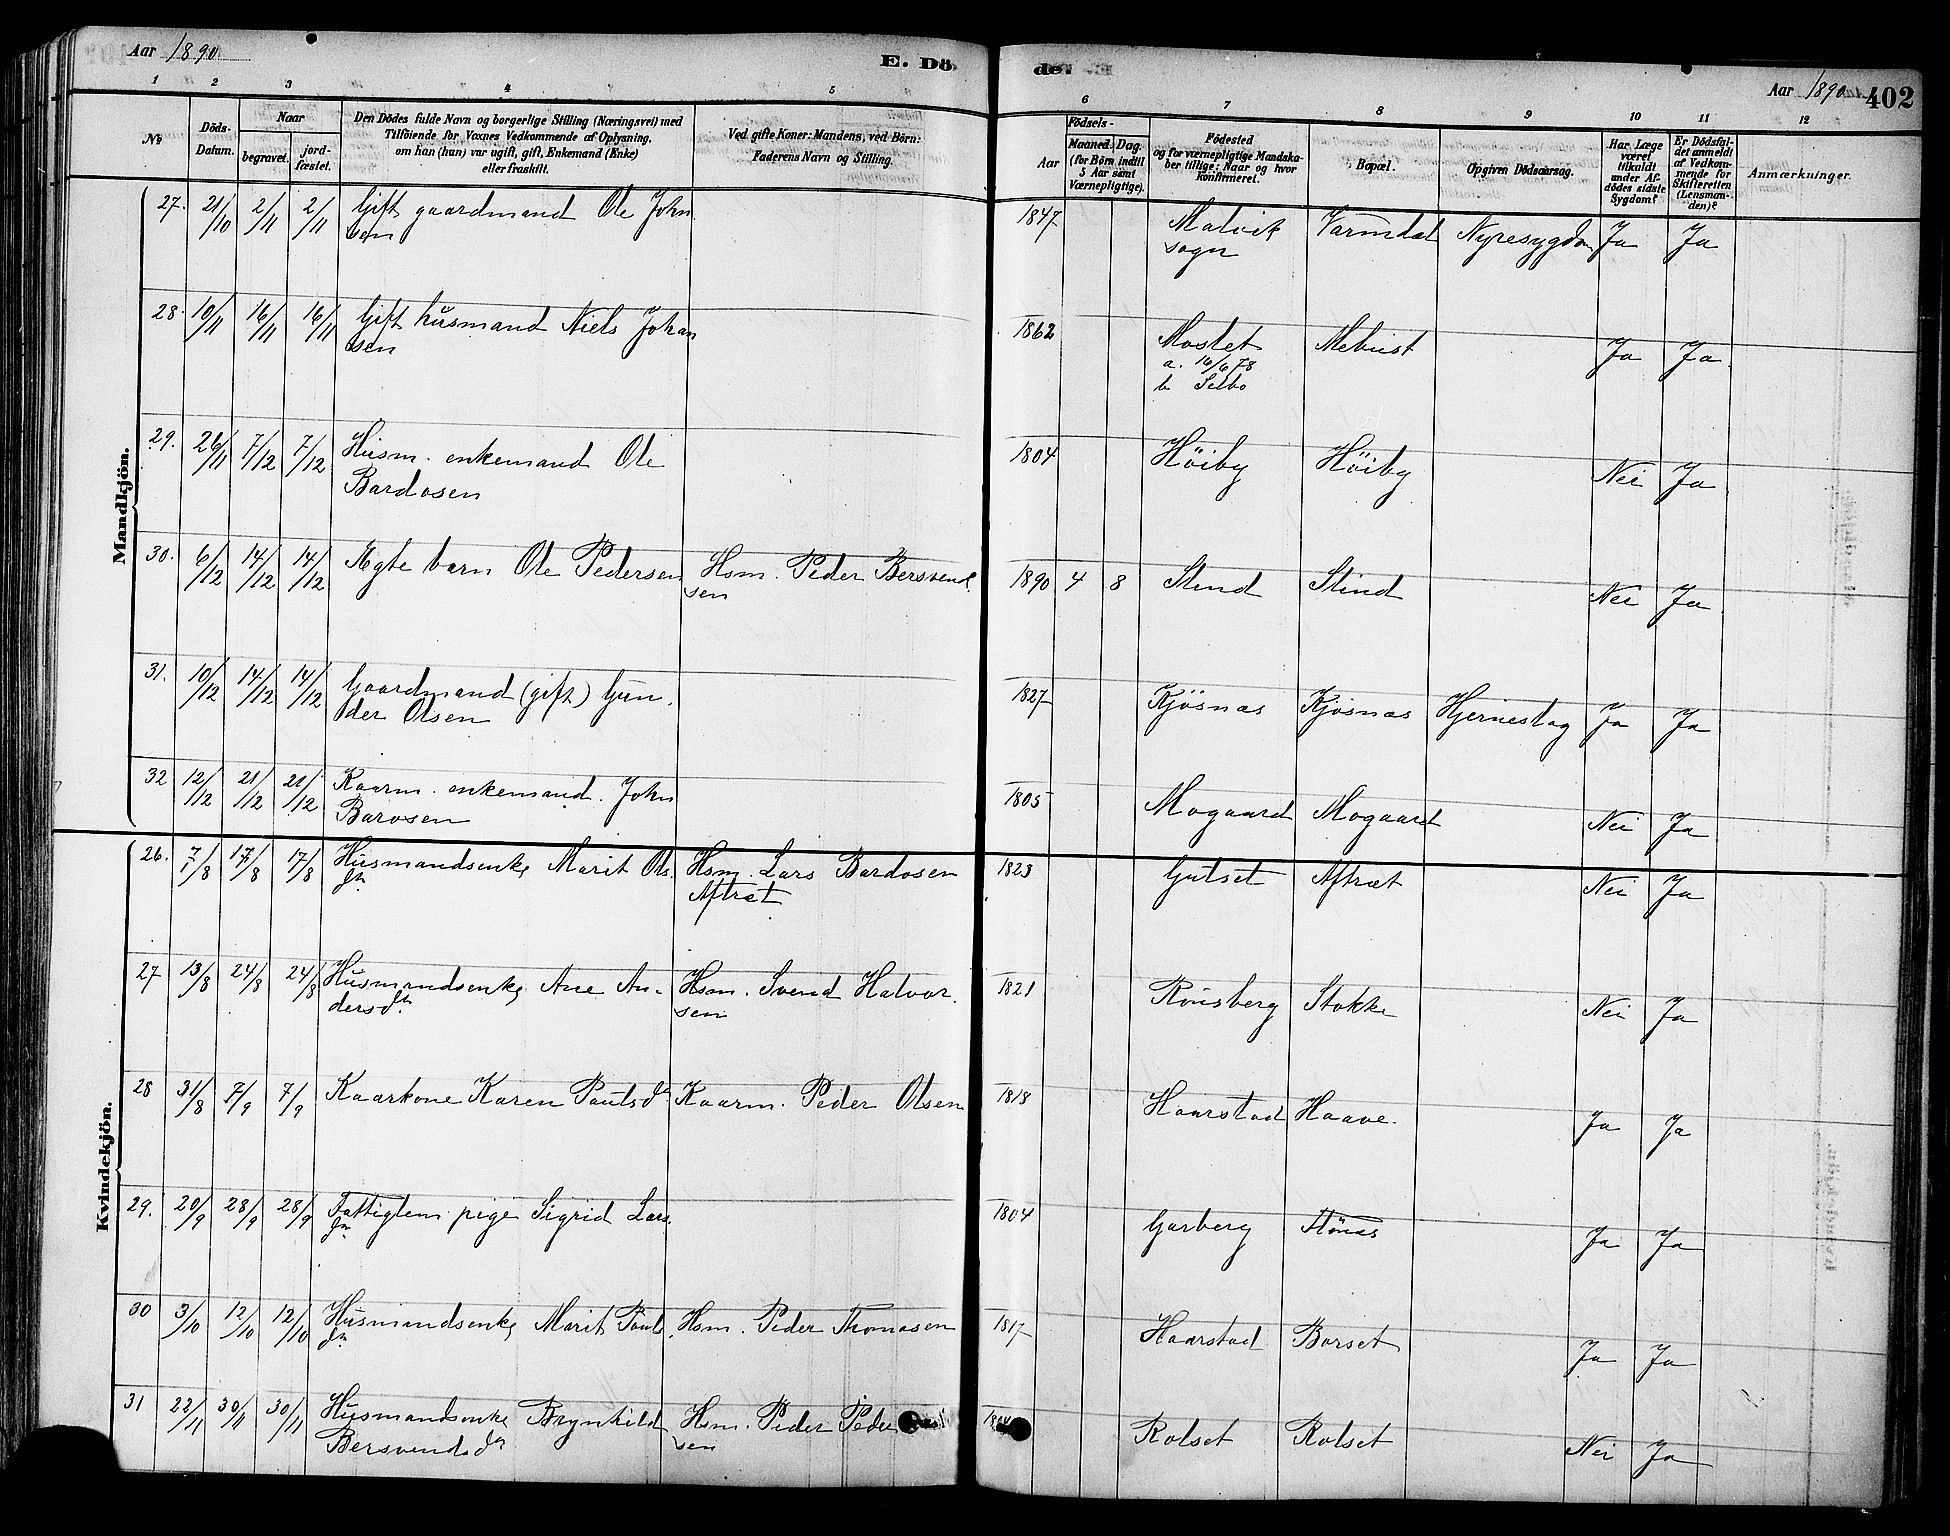 Aar 1890
E. Dö
de.
Aar 1890
402
1 2 3 4 5 6 7 8 9 10 11 12
№
Döds-
Datum.
Naar
begravet.
jord-
fæstet.
Den Dödes fulde Navn og borgerlige Stilling (Næringsvei) med
Tilföiende for Voxnes Vedkommende af Oplysning,
om han (hun) var ugift, gift, Enkemand (Enke)
eller fraskilt.
Ved gifte Koner: Mandens, ved Börn:
Faderens Navn og Stilling.
Födsels-
Aar
Maaned. Dag.
(for Börn indtil
5 Aar samt
Værnepligtige).
Födested
og for værnepligtige Mandska-
ber tillige: Naar og hvor
konfirmeret.
Bopæl.
Opgiven Dödsaarsag.
Har Læge
været
tilkaldt
under Af-
dödes sidste
Sygdom?
Er Dödsfal-
det anmeldt
af Vedkom-
mende for
Skifteretten
(Lensman-
den)?
Anmærkninger.
Mandkjön.
27. 21/10 2/11 2/11 Gift gaardmand Ole John
sen
1847 Malvik Varmdal Nyresygdom Ja Ja
sogn
28. 10/11 16/11 16/11 Gift husmand Niels Johan
sen
1862 Moslet Mebust Ja Ja
a. 16/6 78
b Selbo
29. 26/11 7/12 7/12 Husm. enkemand Ole
Bardosen
1804 Höiby Höiby Nei Ja
30. 6/12 14/12 14/12 Ægte barn Ole Pedersen Hsm. Peder Bersvend
sen
1890 4 8 Stind Stind Nei Ja
31. 10/12 14/12 14/12 Gaardmand (gift) Gun
der Olsen
1827 Kjösnæs Kjösnæs Hjerneslag Ja Ja
32 12/12 21/12 21/12 Kaarm. enkemand. John
Barosen
1805 Mogaard Mogaard Nei Ja
Kvindekjön.
26. 7/8 17/8 17/8 Husmandsenke Marit Ols. Hsm. Lars Bardosen
dtr Aftræt
1823 Gulset Aftræt Nei Ja
27 13/8 24/8 24/8 Husmandsenke Ane An- Hsm. Svend Halvor.
dersdtr sen
1821 Rönsberg Stokke Nei Ja
28 31/8 7/9 7/9 Kaarkone Karen Paulsdtr Kaarm. Peder Olsen
1818 Haarstad Haave. Ja Ja
29. 20/9 28/9 28/9 Fattiglem pige Sigrid Lars.
dtr
1804 Garberg Ja Ja
30 3/10 12/10 12/10 Husmandsenke Marit Pauls Hsm. Peder Thomasen
dtr
1817 Haarstad Borset Ja Ja
31 22/11 30/11 30/11 Husmandsenke Brynhild Hsm. Peder Peder
Bersvendsdtr sen
Rolset Rolset Nei Ja